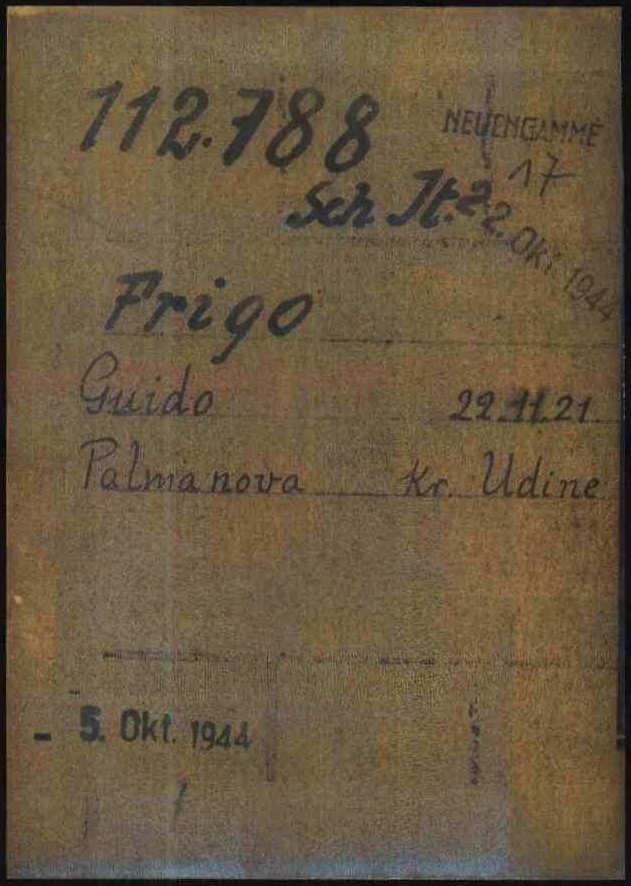 112.788
NEUENGAMME
17
Sch It.
22. Okt. 1944
Frigo
Guido 22.11.21
Palmanova Kr. Udine
- 5. Okt. 1944